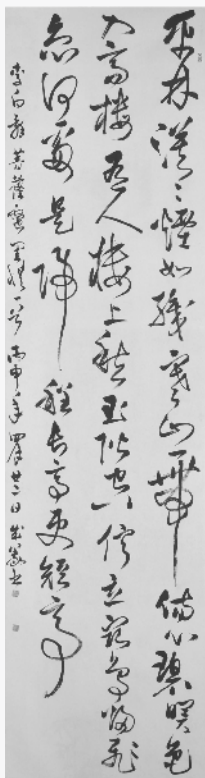 平林漠〻煙如織寒山一帶傷心碧暝色
入高樓有人樓上愁玉階空佇立宿鳥歸飛
急何處是歸程長亭更短亭
李白 菩薩蠻 丙申年 日 書